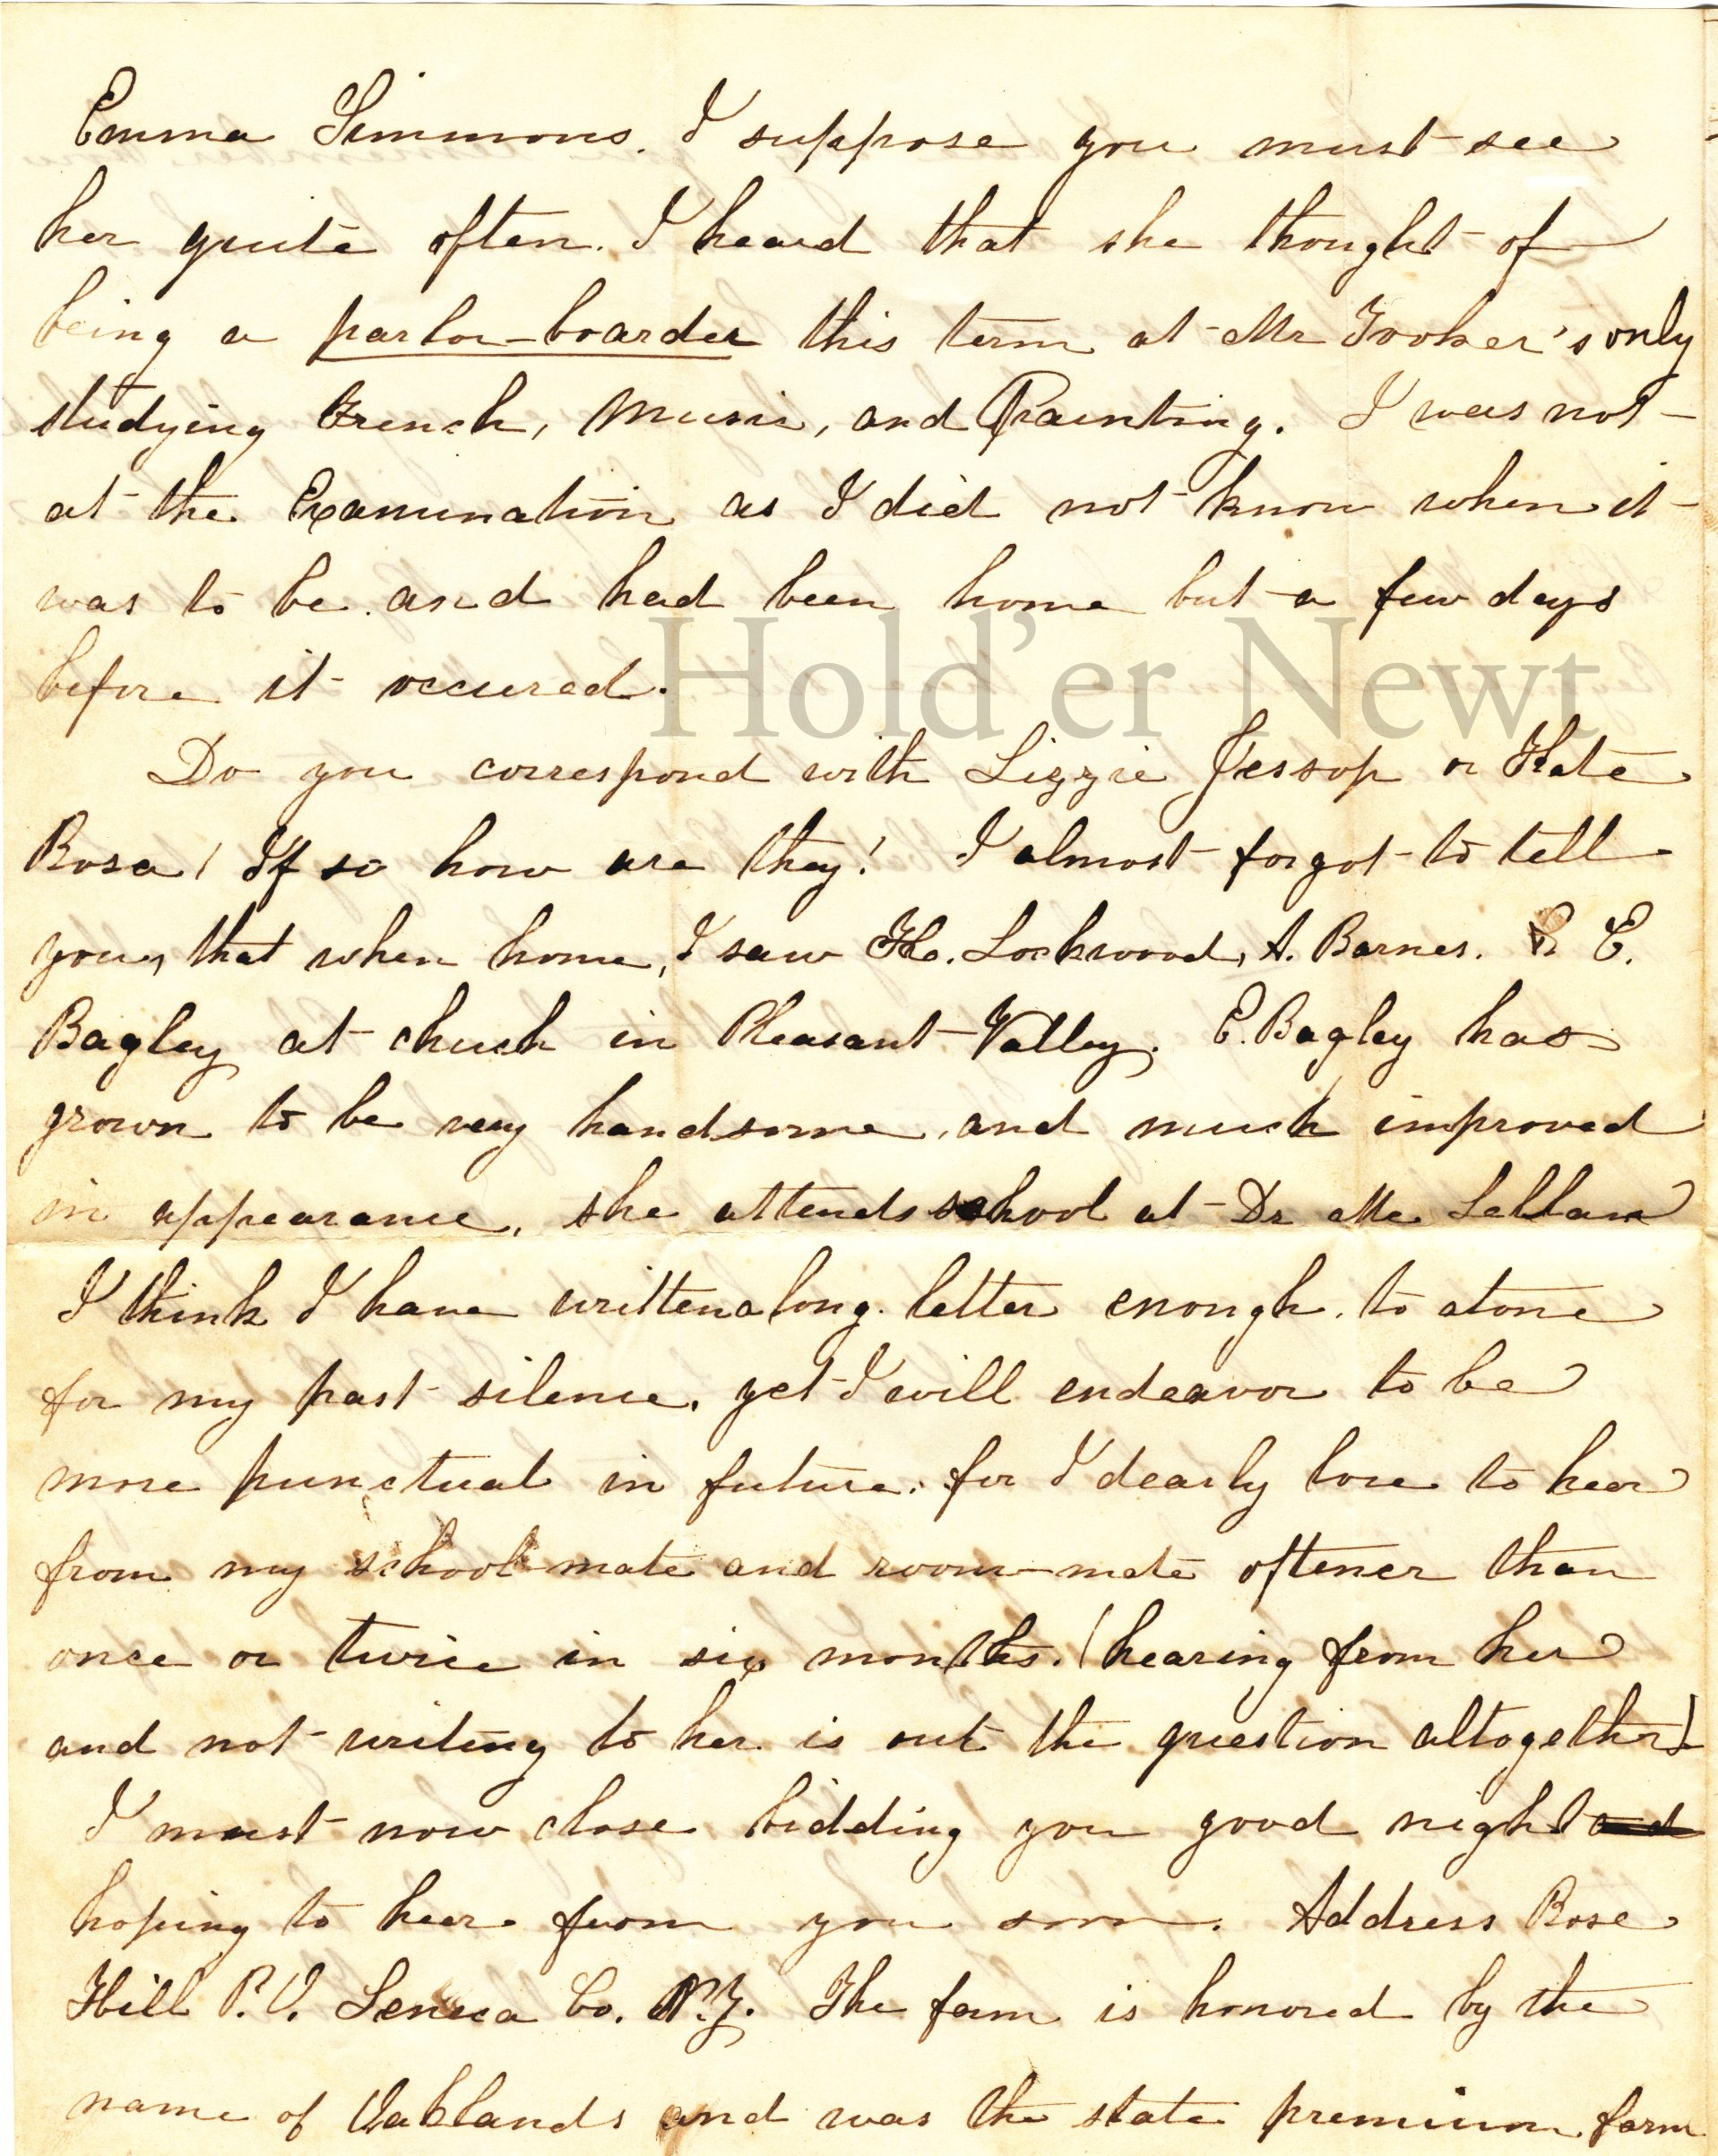 Emma Simmons. I suppose you must see
her quite often. I heard that she thought of
being a parlor-boarder this term at Mr Tooker's only
studying French, Music, and Painting. I was not
at the Examination as I did not know when it
was to be and had been home but a few days
before it occured.
Hold'er Newt
Do you correspond with Lizzie Jessop or Kate
Rosa! If so how are they! I almost forgot to tell
you, that when home, I saw H. Lockwood, A. Barnes. & E.
Bagley at chuch in Pleasant Valley. E. Bagley has
grown to be very handsome, and much improved
in appearance, she attends school at Dr Mc Lellan
I think I have written a long letter enough. to atone
for my past silence, yet I will endeavor to be
more punctual in future. for I dearly love to hear
from my school-mate and room-mate oftener than
once or twice in six months. (hearing from her
and not writing to her is out the question altogether)
I must now close bidding you good night and
hoping to hear from you soon. Address Rose
Hill P.O. Seneca Co. N.Y. The farm is honored by the
name of Oaklands and was the state premium farm